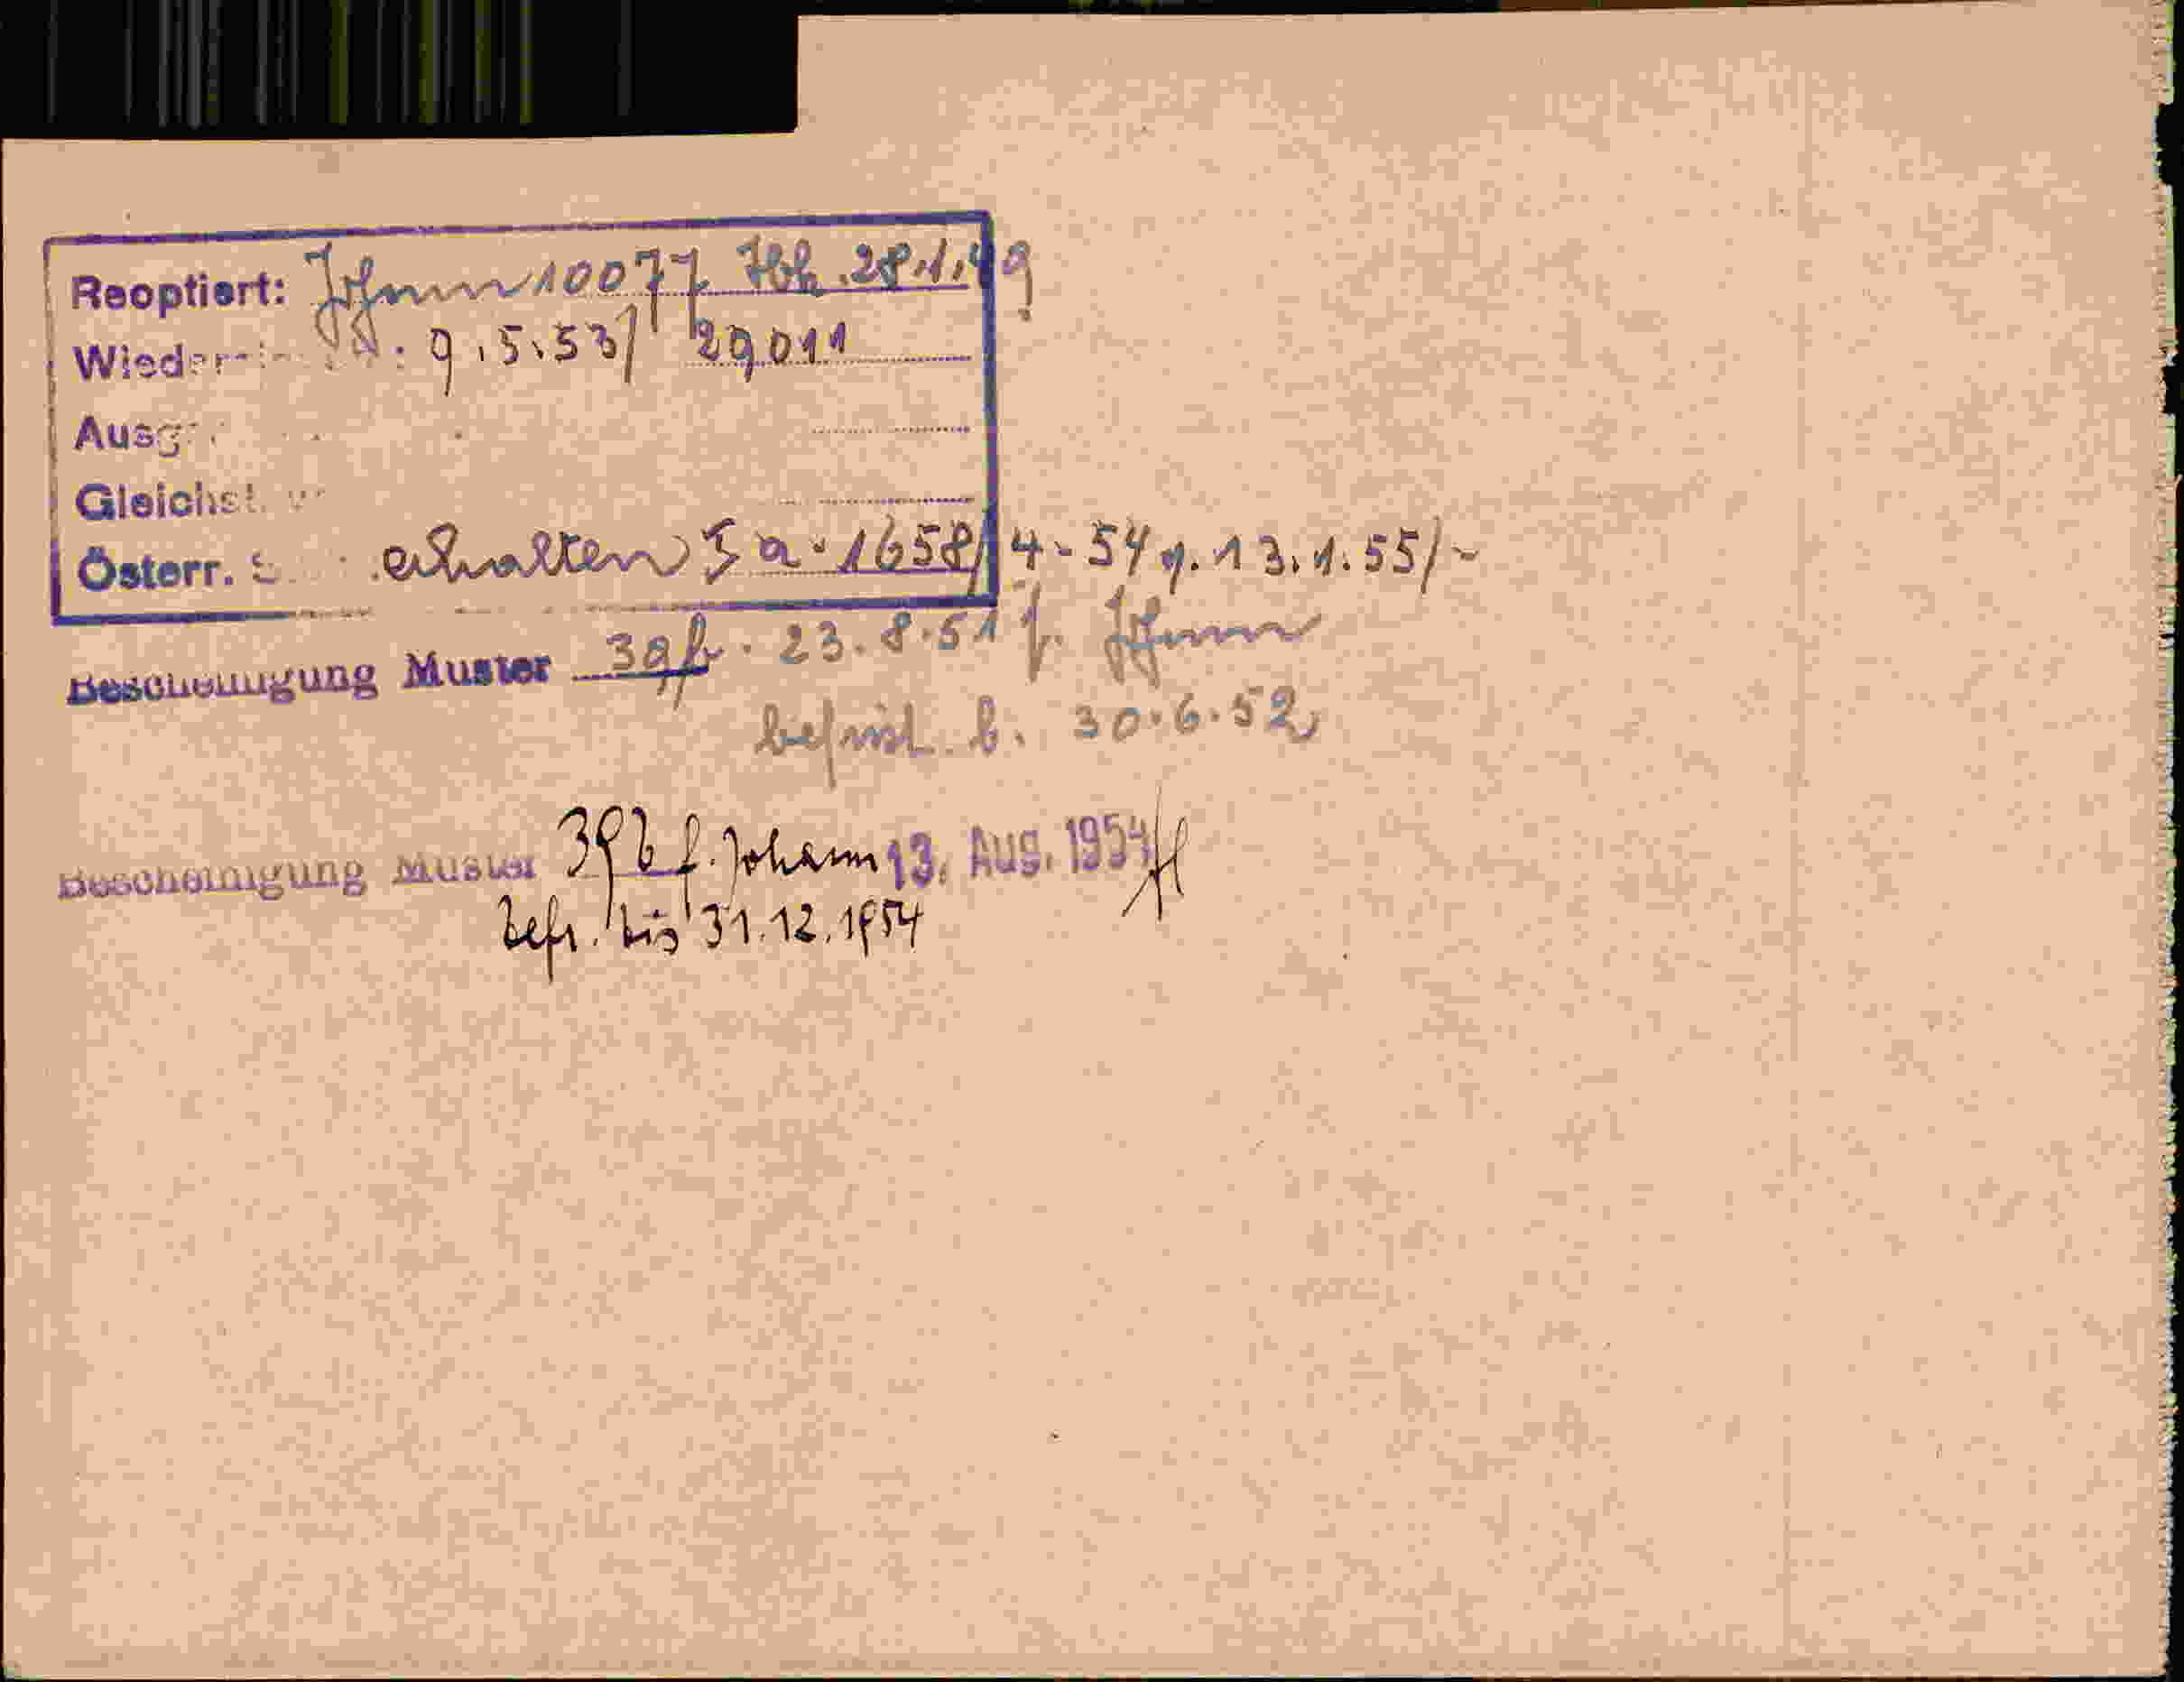 Reoptiert: Johann 10077 Ibk. 28.1.49
9.5.53/ 29011
Österr. erhalten I a - 1658/4-54 v. 13.1.55/-
Bescheinigung Muster 39b. 23.8.51 f. Johann
befrist. b. 30.6.52
Bescheinigung Muster 39b f. Johann 13. Aug. 1954
befr. bis 31.12.1954